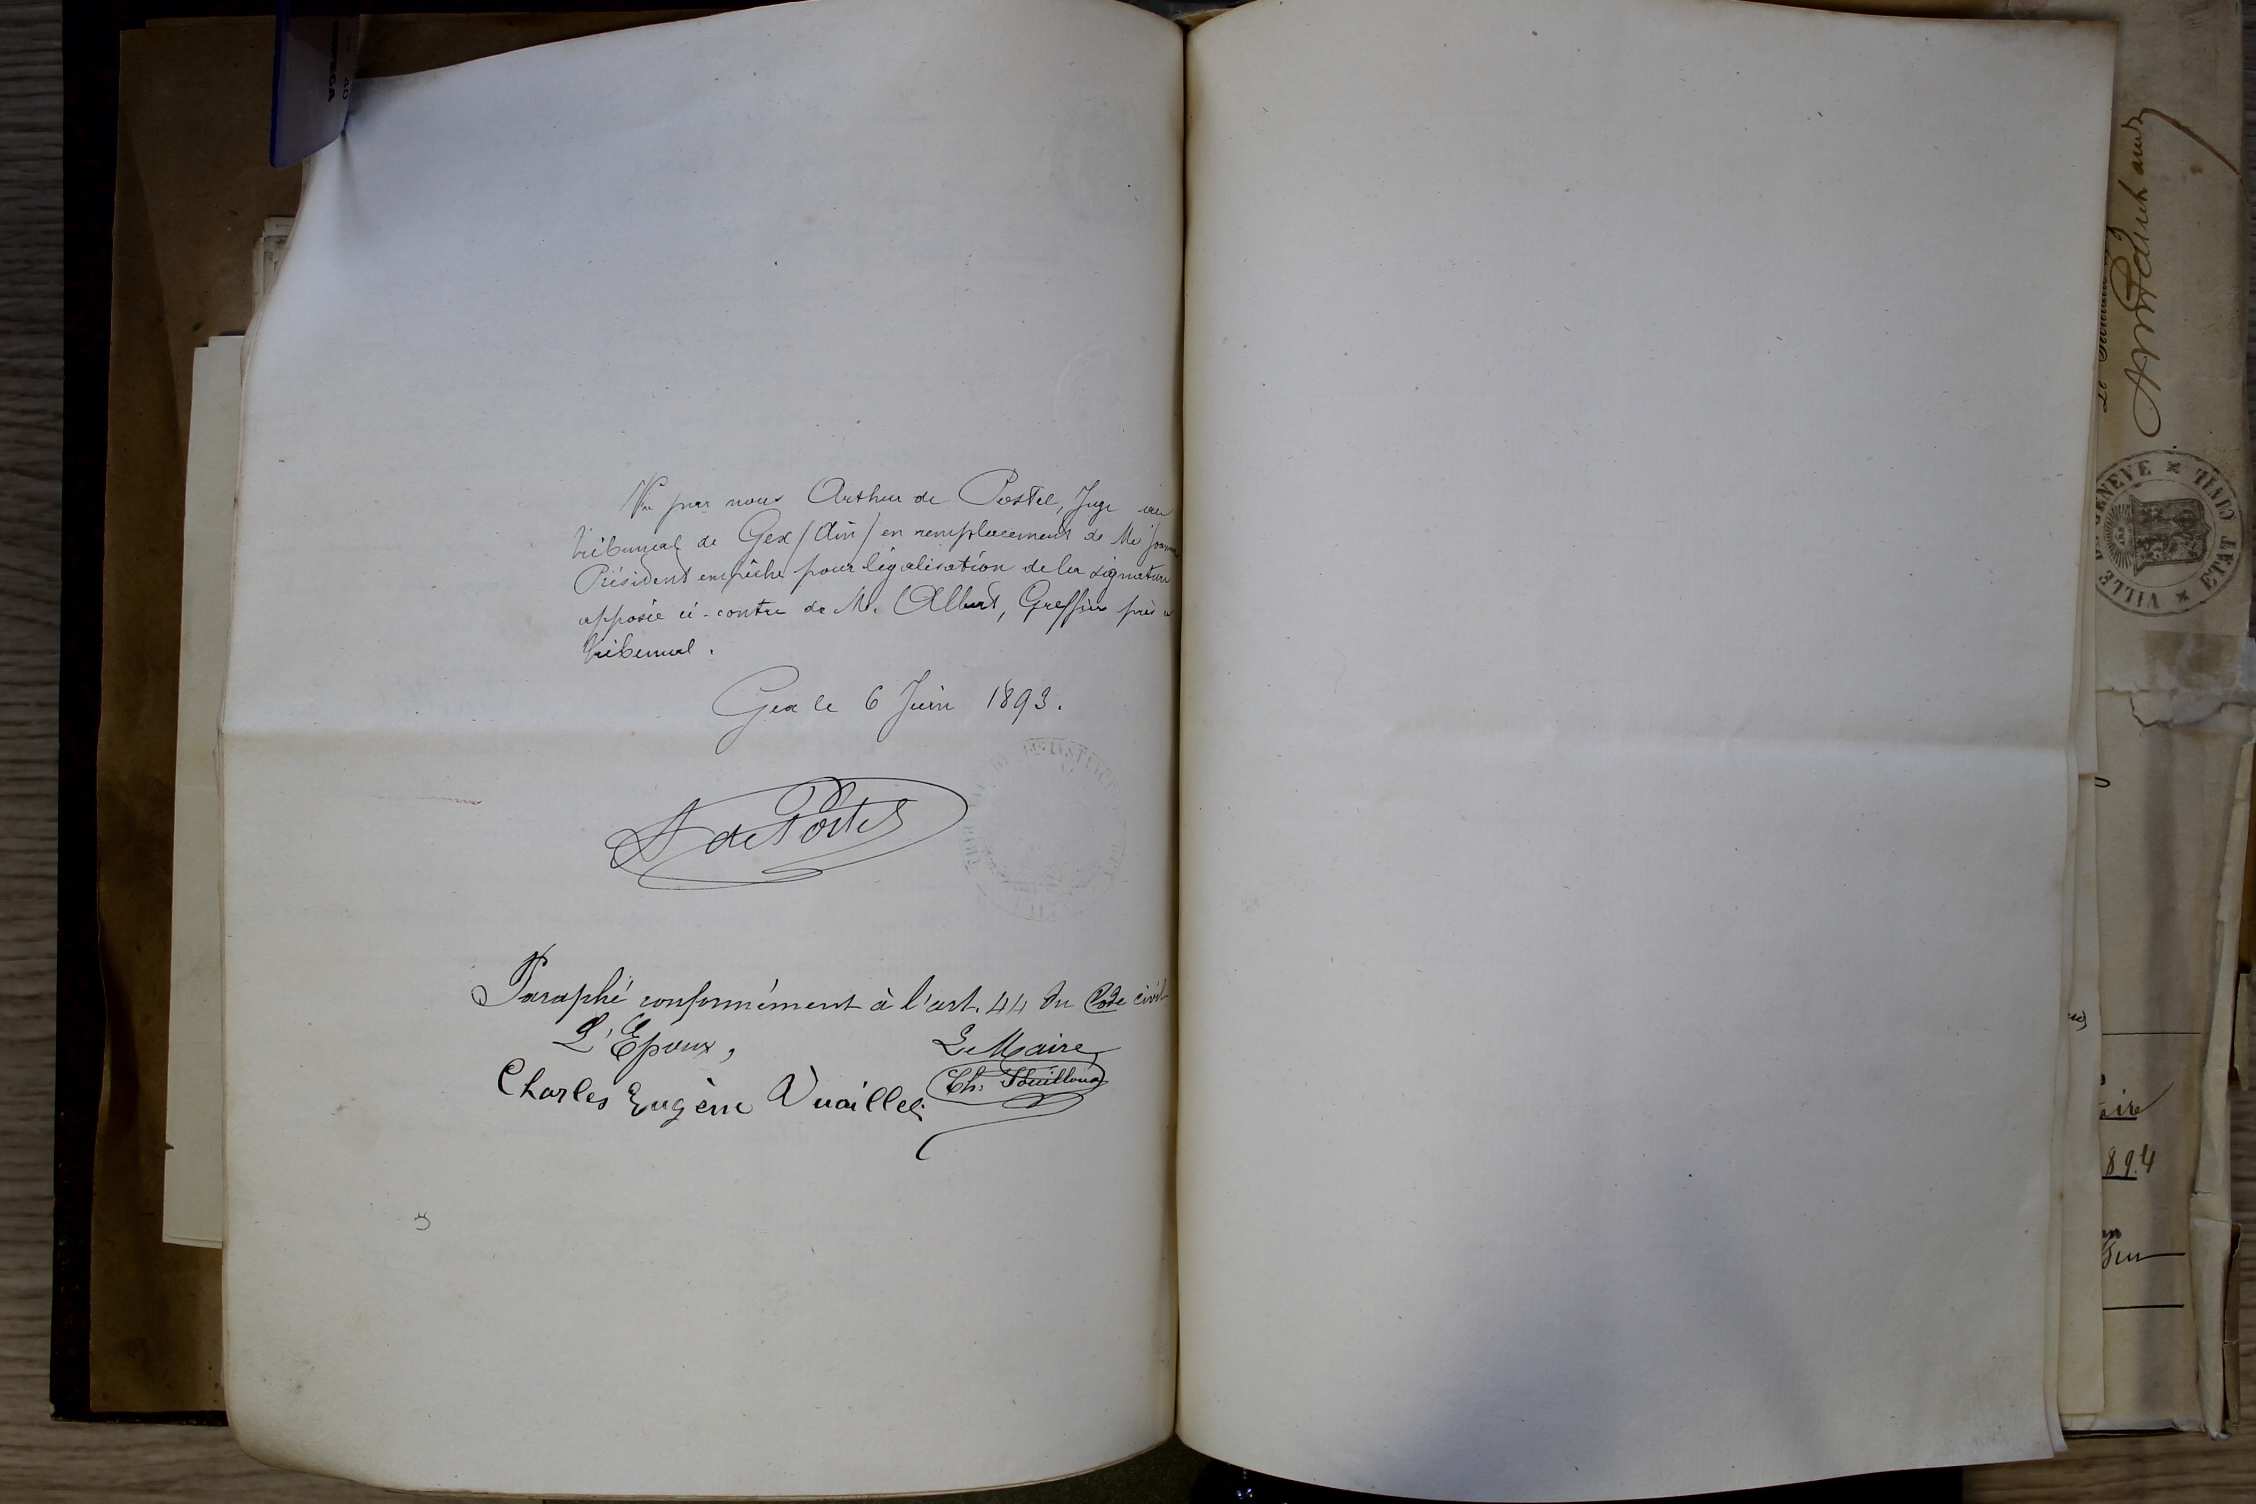 Vu par nous Arthur de Postel, Juge au
tribunal de Gex (Ain) en remplacement de Mr
Président empêché pour légalisation de la signature
apposée ci-contre de Mr Albert, Greffier près
tribunal.
Gex le 6 Juin 1893.
A de Postel
Paraphé conformément à l'art. 44 du Code civil
L'Epoux, Le Maire
Charles Eugène Vuaillet Th.
VILLE DE GENÈVE
ETAT CIVIL
1894